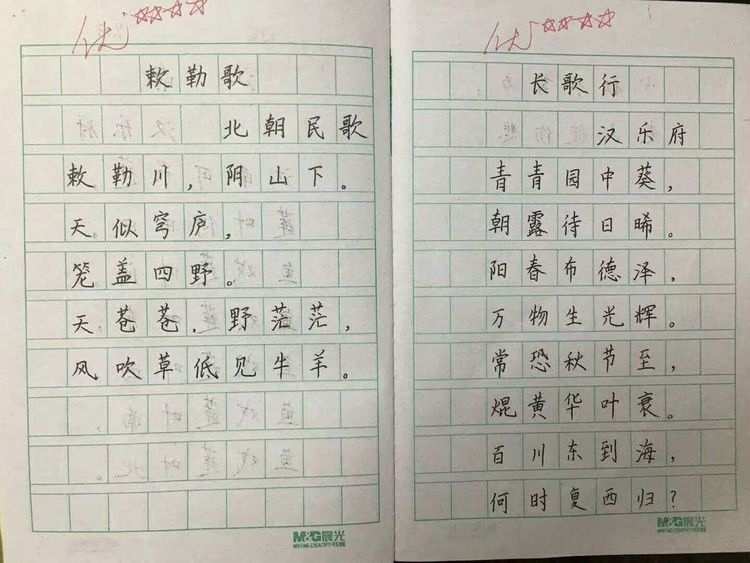 优
敕勒歌
北朝民歌
敕勒川，阴山下。
天似穹庐，
笼盖四野。
天苍苍，野茫茫，
风吹草低见牛羊。
M&G晨光
优
长歌行
汉乐府
青青园中葵，
朝露待日晞。
阳春布德泽，
万物生光辉。
常恐秋节至，
焜黄华叶衰。
百川东到海，
何时复西归？
M&G晨光